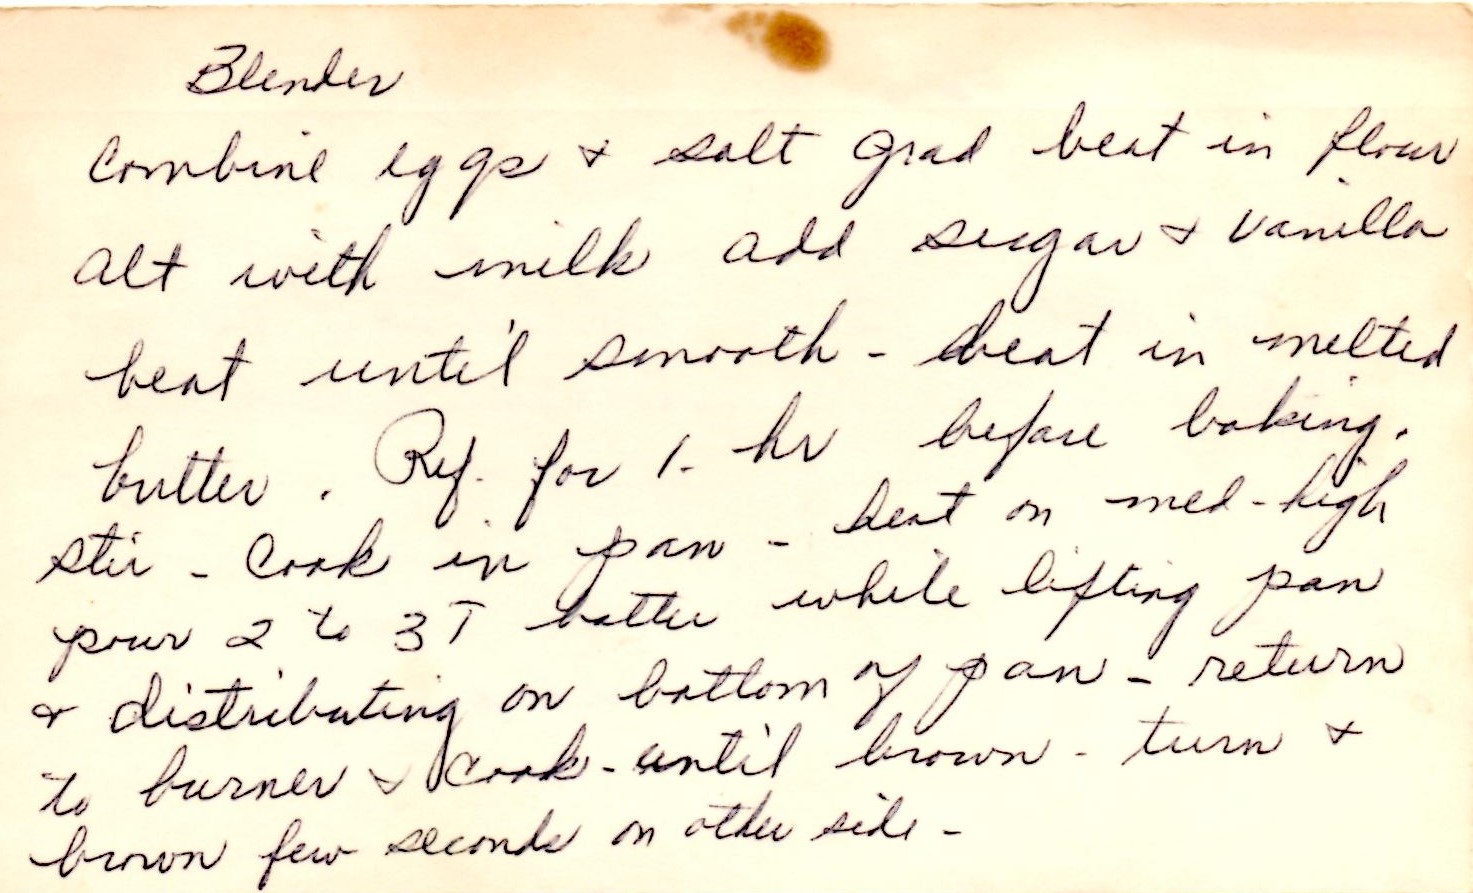 Blender
Combine eggs & salt Grad beat in flour
alt with milk add sugar & vanilla
beat until smooth - beat in melted
butter. Ref. for 1- hr before baking.
stir - Cook in pan - heat on med-high
pour 2 to 3 T batter while lifting pan
& distributing on bottom of pan - return
to burner & cook - until brown - turn &
brown few seconds on other side -